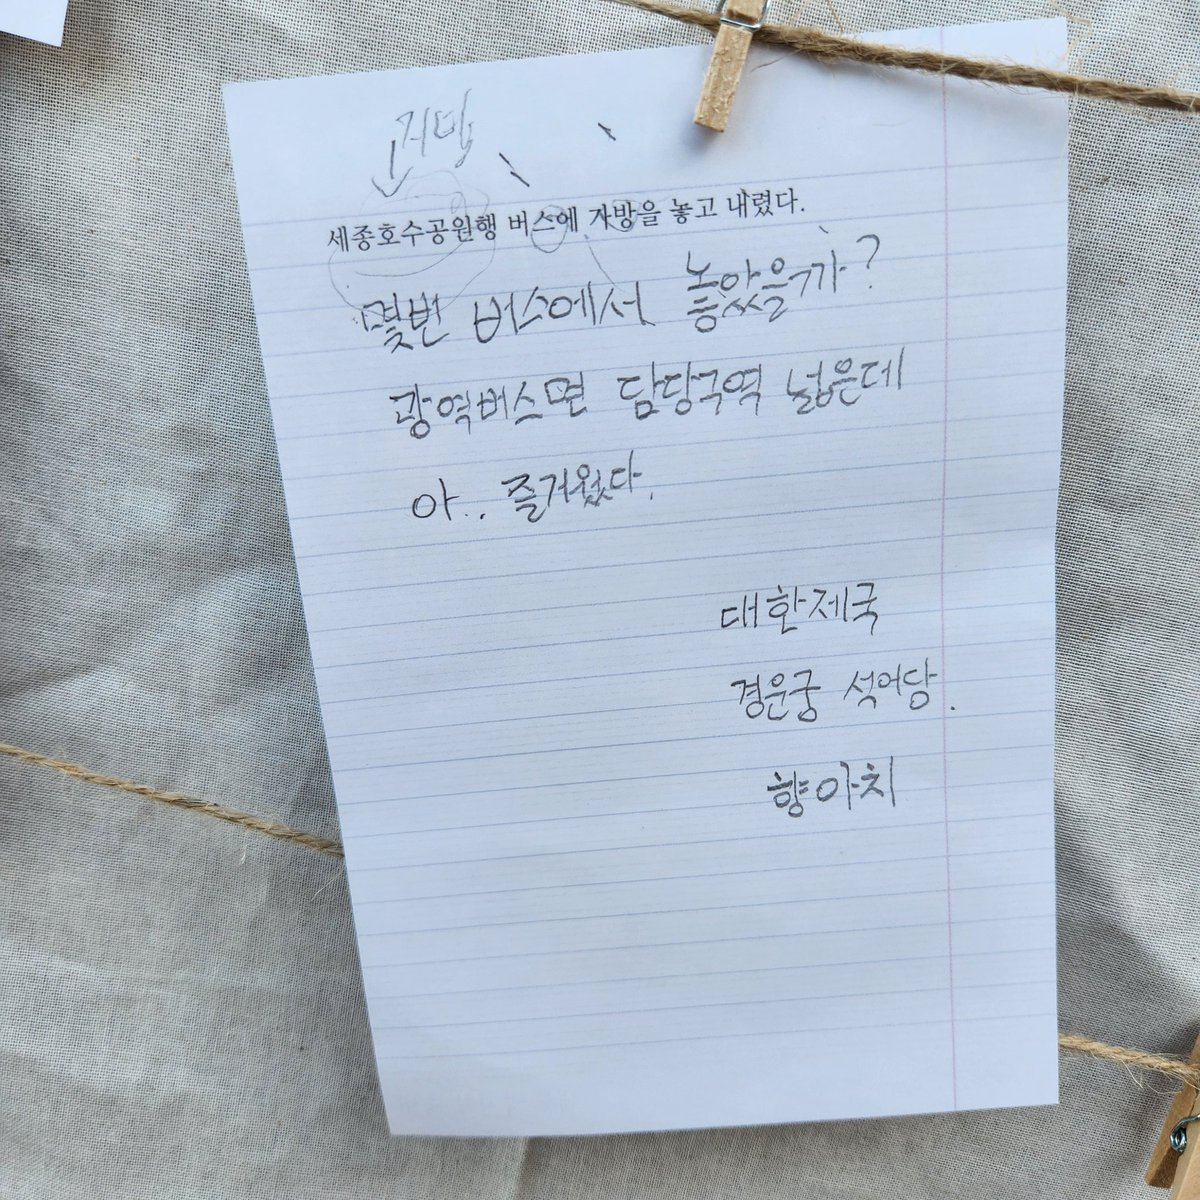 지텝
세종호수공원행 버스에 가방을 놓고 내렸다.
몇번 버스에서 놓았을가?
광역버스면 담당구역 넓은데
아.. 즐거웠다.
대한제국
경운궁 석어당.
향아치